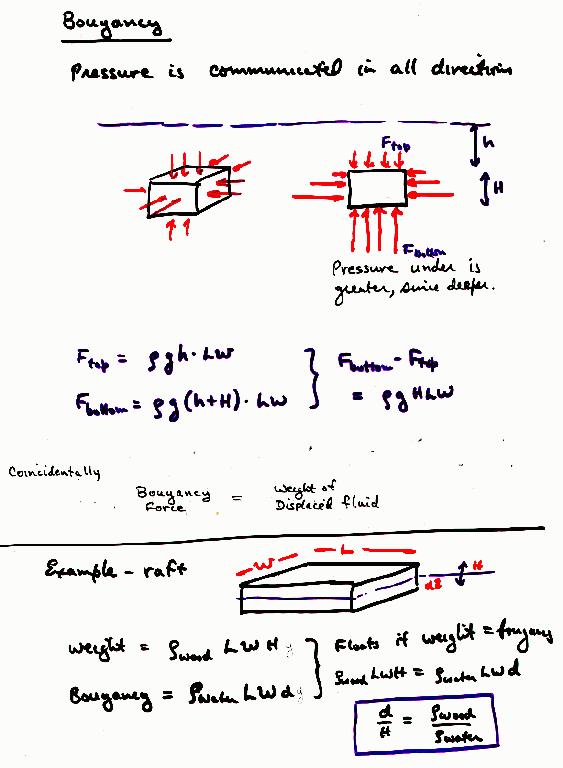 Bouyancy
Pressure is communicated in all directions
F_top
h
H
F_bottom
Pressure under is
greater, since deeper.
F_top = ρgh · LW
F_bottom = ρg(h+H) · LW
F_bottom - F_top
= ρgHLW
Coincidentally
Bouyancy Force = Weight of Displaced fluid
Example - raft
W
L
H
d
Weight = ρ_wood LWHg
Bouyancy = ρ_water LWdg
Floats if weight =
ρ_wood LWH = ρ_water LWd
d/H = ρ_wood/ρ_water